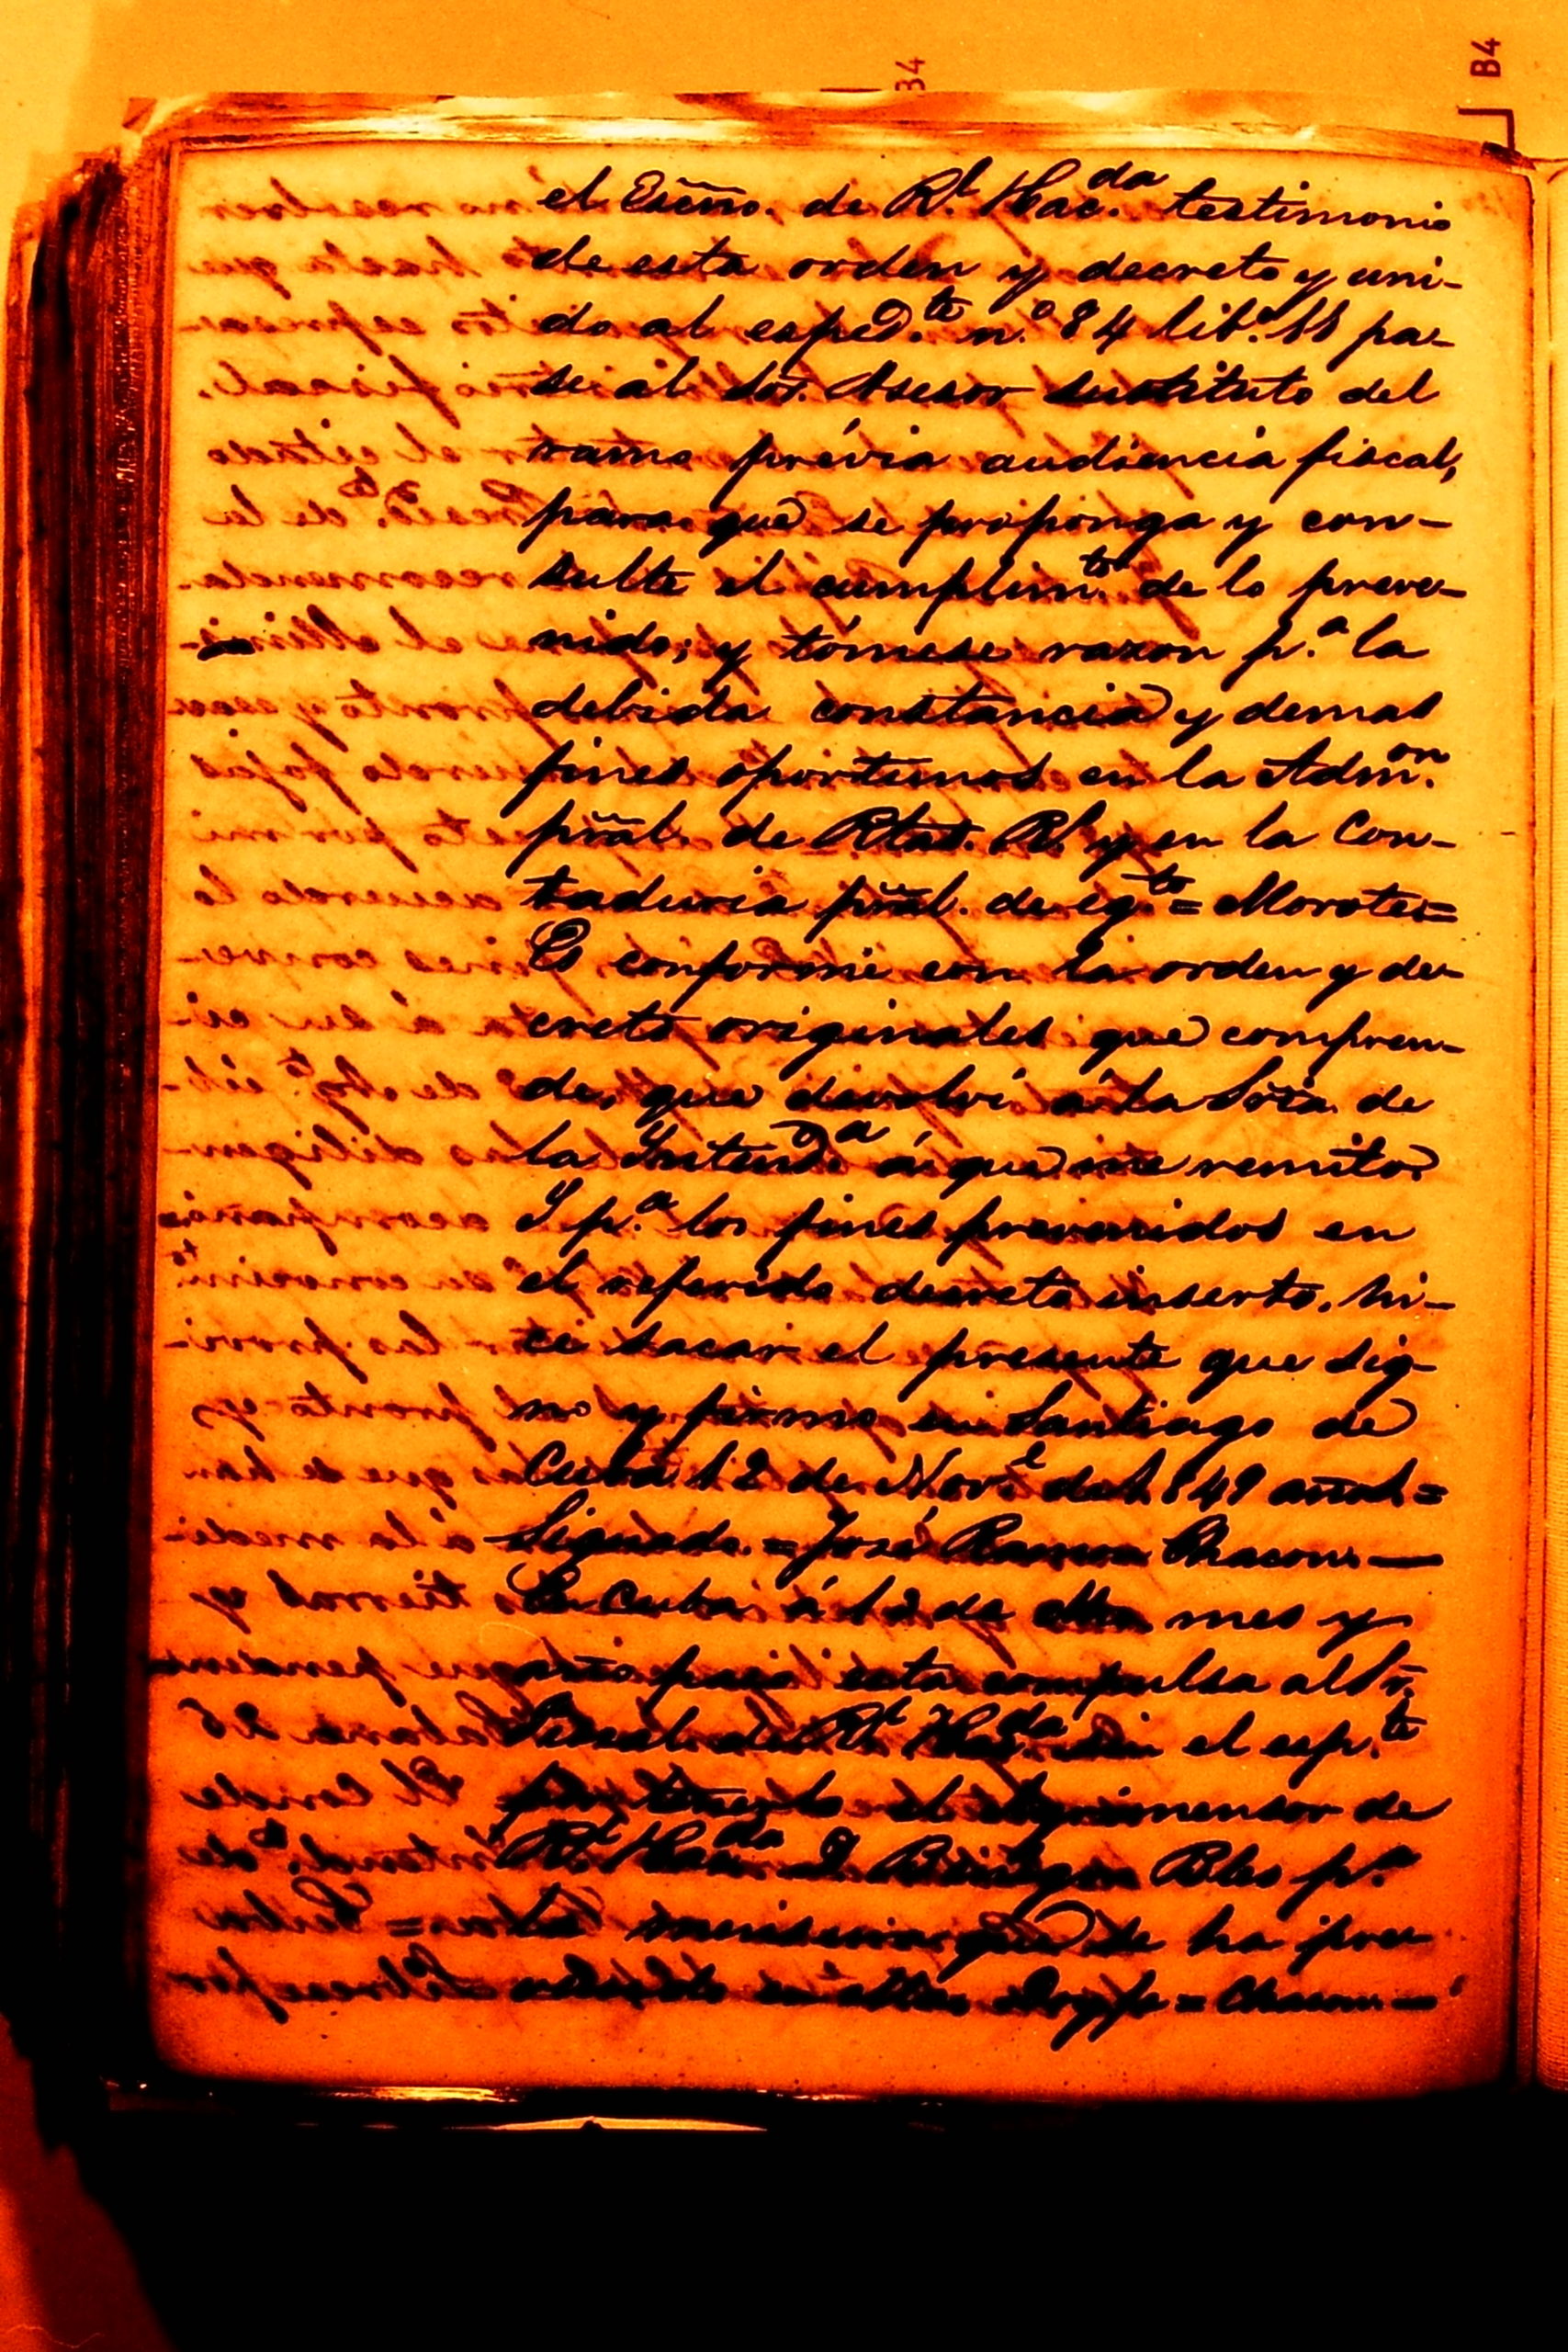 B4
B4
el Esc̃no. de Rl. Hac.da testimonio
de esta orden y decreto y uni-
do al esped.te n.º 84 lib.º 11 pa-
se al Sor. Asesor sustituto del
ramo prévia audiencia fiscal,
para que se proponga y con-
sulte el cumplim.to de lo preve-
nido; y tómese razon p.a la
debida constancia y demas
fines oportunos en la Adm.on
pr̃al. de Rtas. Rl. y en la Con-
taduria pr̃al. de egto = Morote =
Es conforme con la orden y de-
creto originales que compren-
de, que devolví á la Sr̃ia. de
la Intend.a á que me remito.
Y p.a los fines prevenidos en
el referido decreto inserto, hi-
ce sacar el presente que sig-
no y firmo en Santiago de
Cuba 12 de Nov.e de 1849 años =
Signado. = José Ramon Chacon. —
En Cuba á 12 de dho mes y
año pasó esta compulsa al Sr.
Fiscal de Rl. Hac.da sin el esp.te
por tenerlo el Agrimensor de
Rl. Hac.da D. Bles p.a
la mensura que se ha
= Chacon —